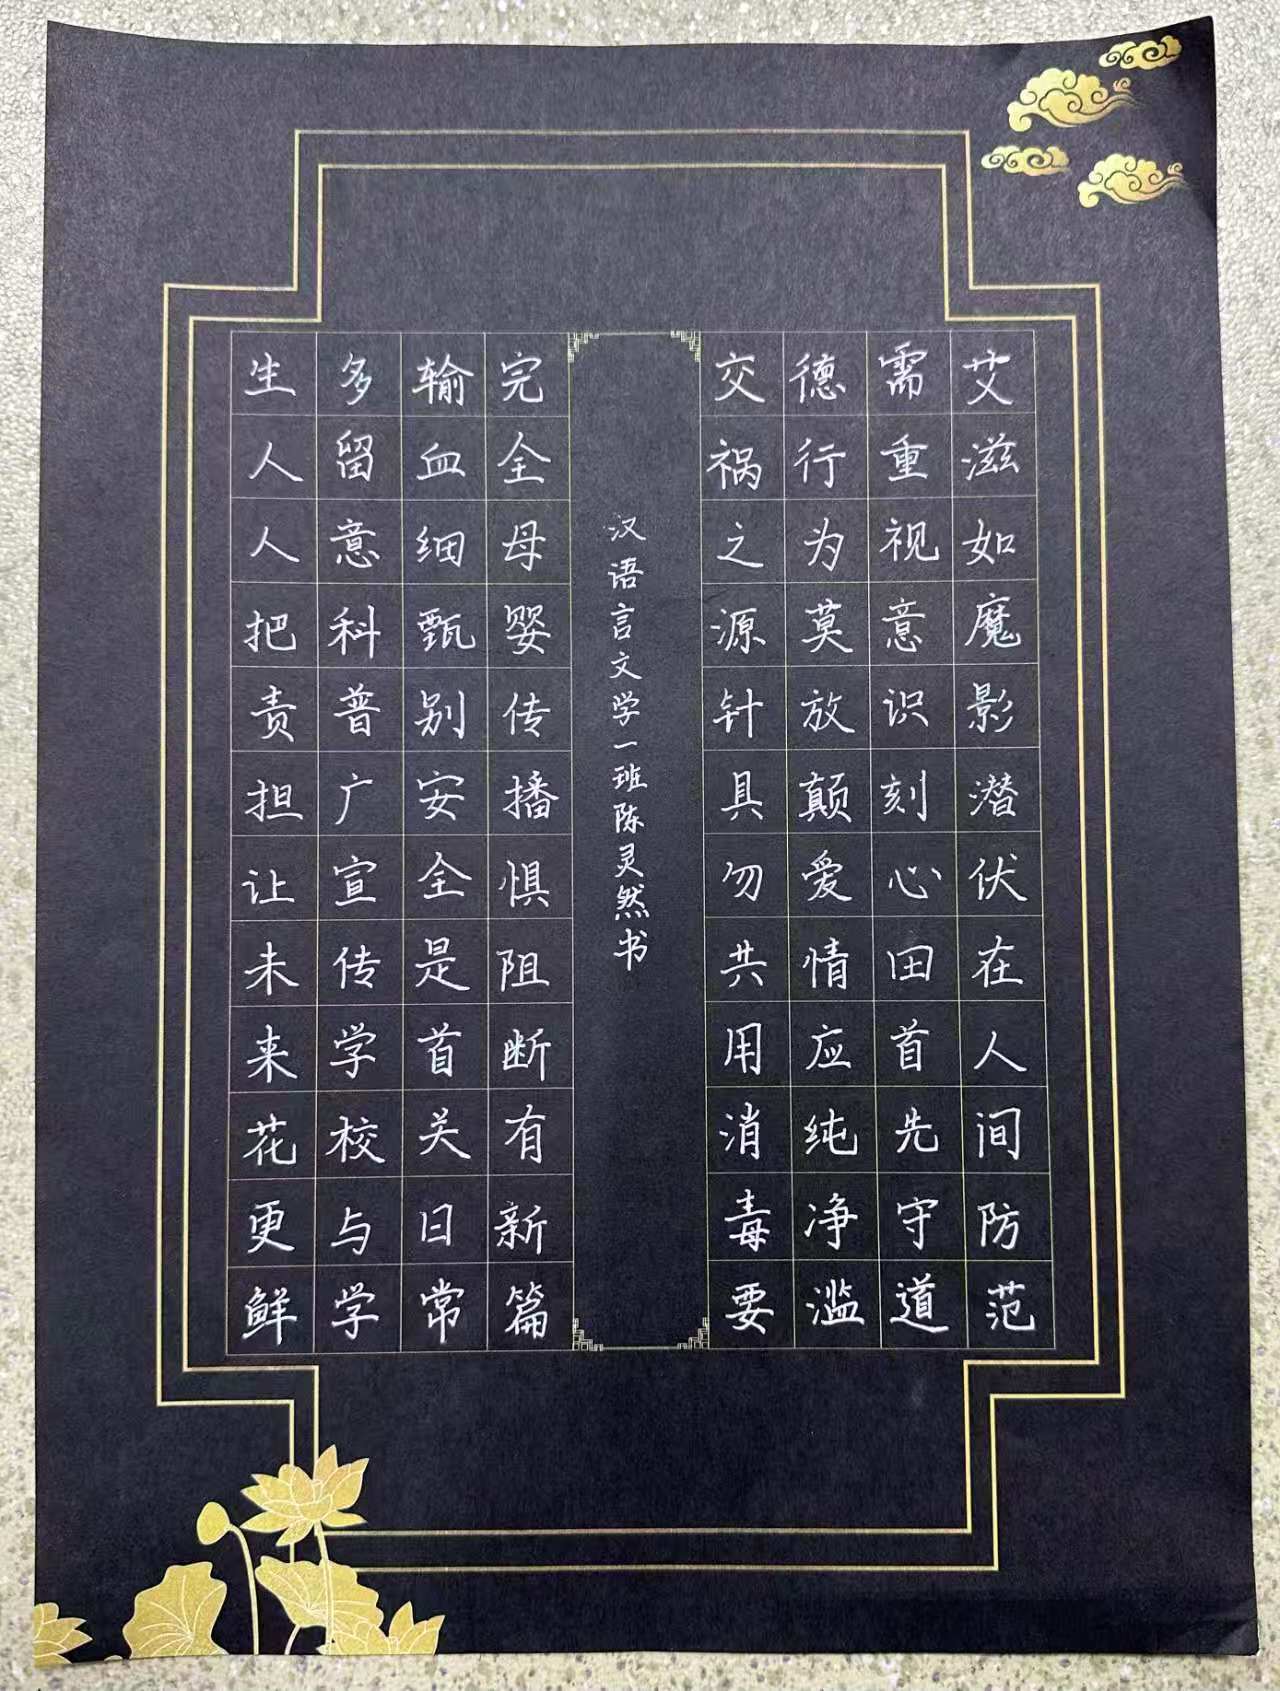 艾滋如魔影潜伏在人间防范
需重视意识刻心田首先守道
德行为莫放颠爱情应纯净滥
交祸之源针具勿共用消毒要
汉语言文学一班陈灵然书
完全母婴传播惧阻断有新篇
输血细甄别安全是首关日常
多留意科普广宣传学校与学
生人人把责担让未来花更鲜